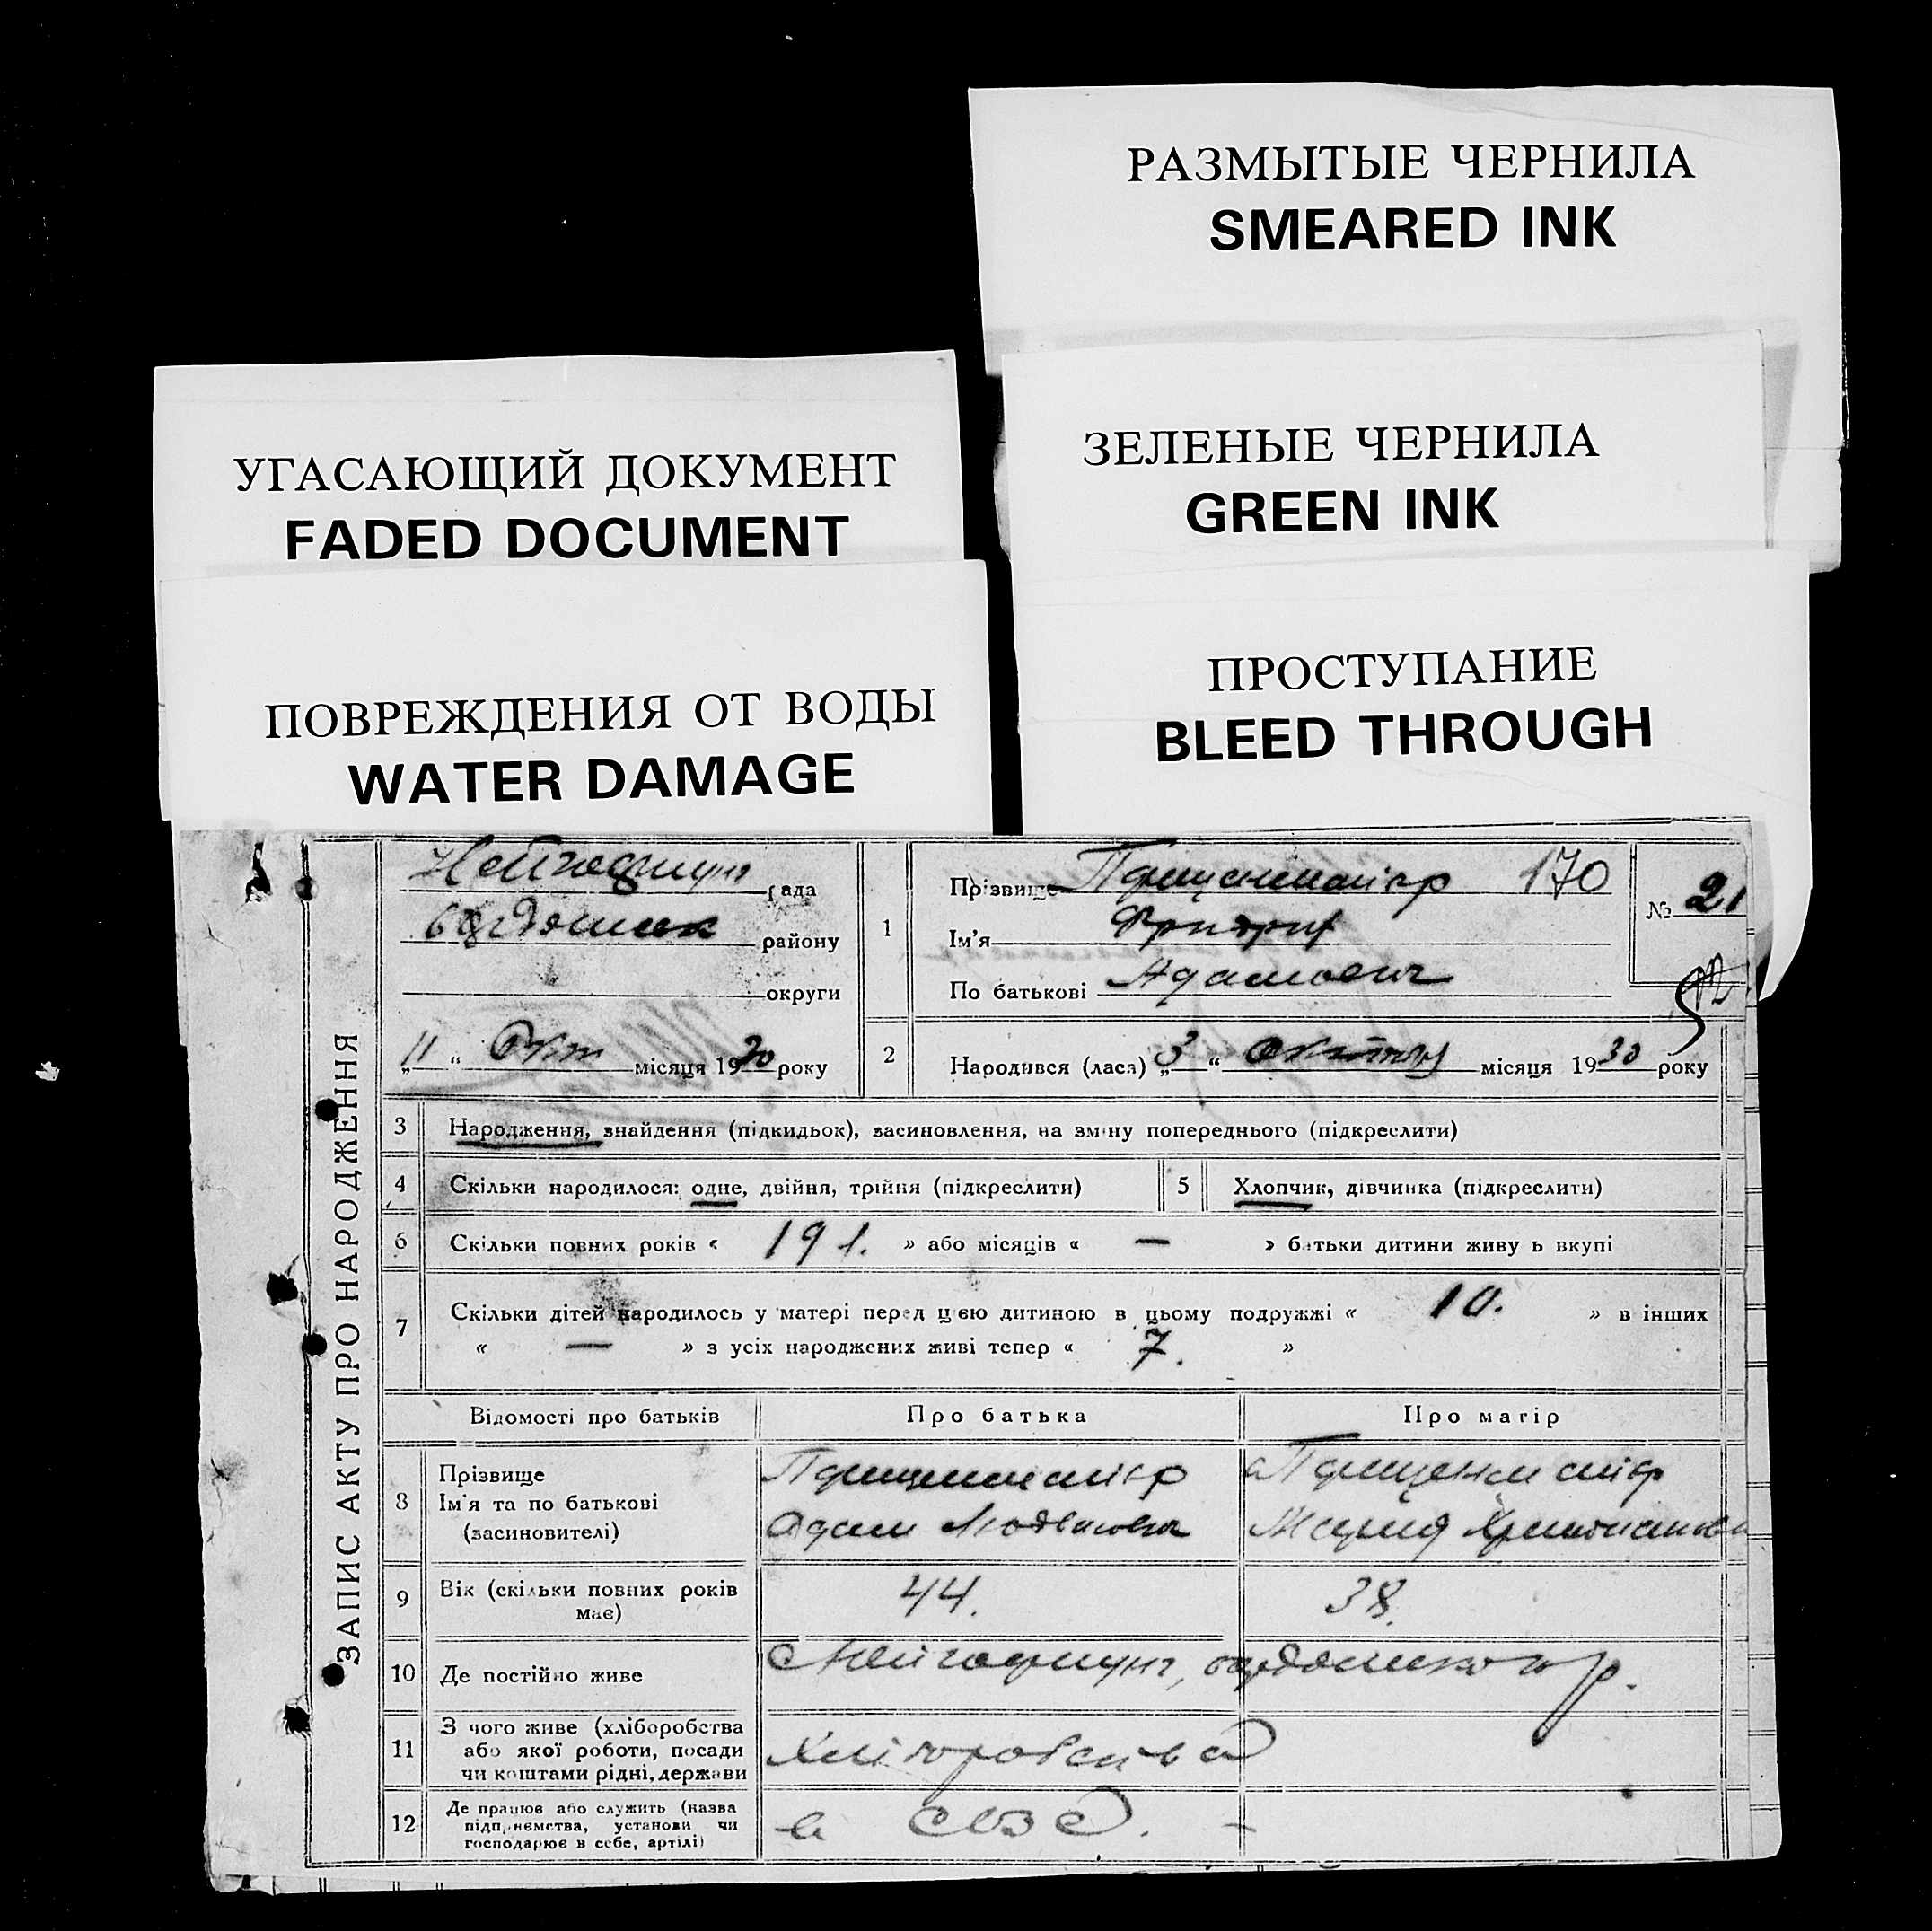 РАЗМЫТЫЕ ЧЕРНИЛА
SMEARED INK
УГАСАЮЩИЙ ДОКУМЕНТ
FADED DOCUMENT
ЗЕЛЕНЫЕ ЧЕРНИЛА
GREEN INK
ПОВРЕЖДЕНИЯ ОТ ВОДЫ
WATER DAMAGE
ПРОСТУПАНИЕ
BLEED THROUGH
ЗАПИС АКТУ ПРО НАРОДЖЕННЯ
рада
району
округи
„11“ Окт місяця 1930 року
1
Прізвище 170
Ім'я Фридрих
По батькові Адамович
№ 21
2
Народився (лася) „3“ місяця 1930 року
3 Народження, знайдення (підкидьок), засиновлення, на зміну попереднього (підкреслити)
4 Скільки народилося: одне, двійня, трійня (підкреслити)
5 Хлопчик, дівчинка (підкреслити)
6 Скільки повних років « 19 » або місяців « — » батьки дитини живуть вкупі
7 Скільки дітей народилось у матері перед цією дитиною в цьому подружжі « 10. » в інших
« — » з усіх народжених живі тепер « 7. »
Відомості про батьків
Про батька
Про матір
8 Прізвище
Ім'я та по батькові
(засновителі)
Адам
Мария
9 Вік (скільки повних років
має)
44.
38.
10 Де постійно живе
11 З чого живе (хліборобства
або якої роботи, посади
чи коштами рідні, держави
12 Де працює або служить (назва
підприємства, установи чи
господарює в себе, артілі)